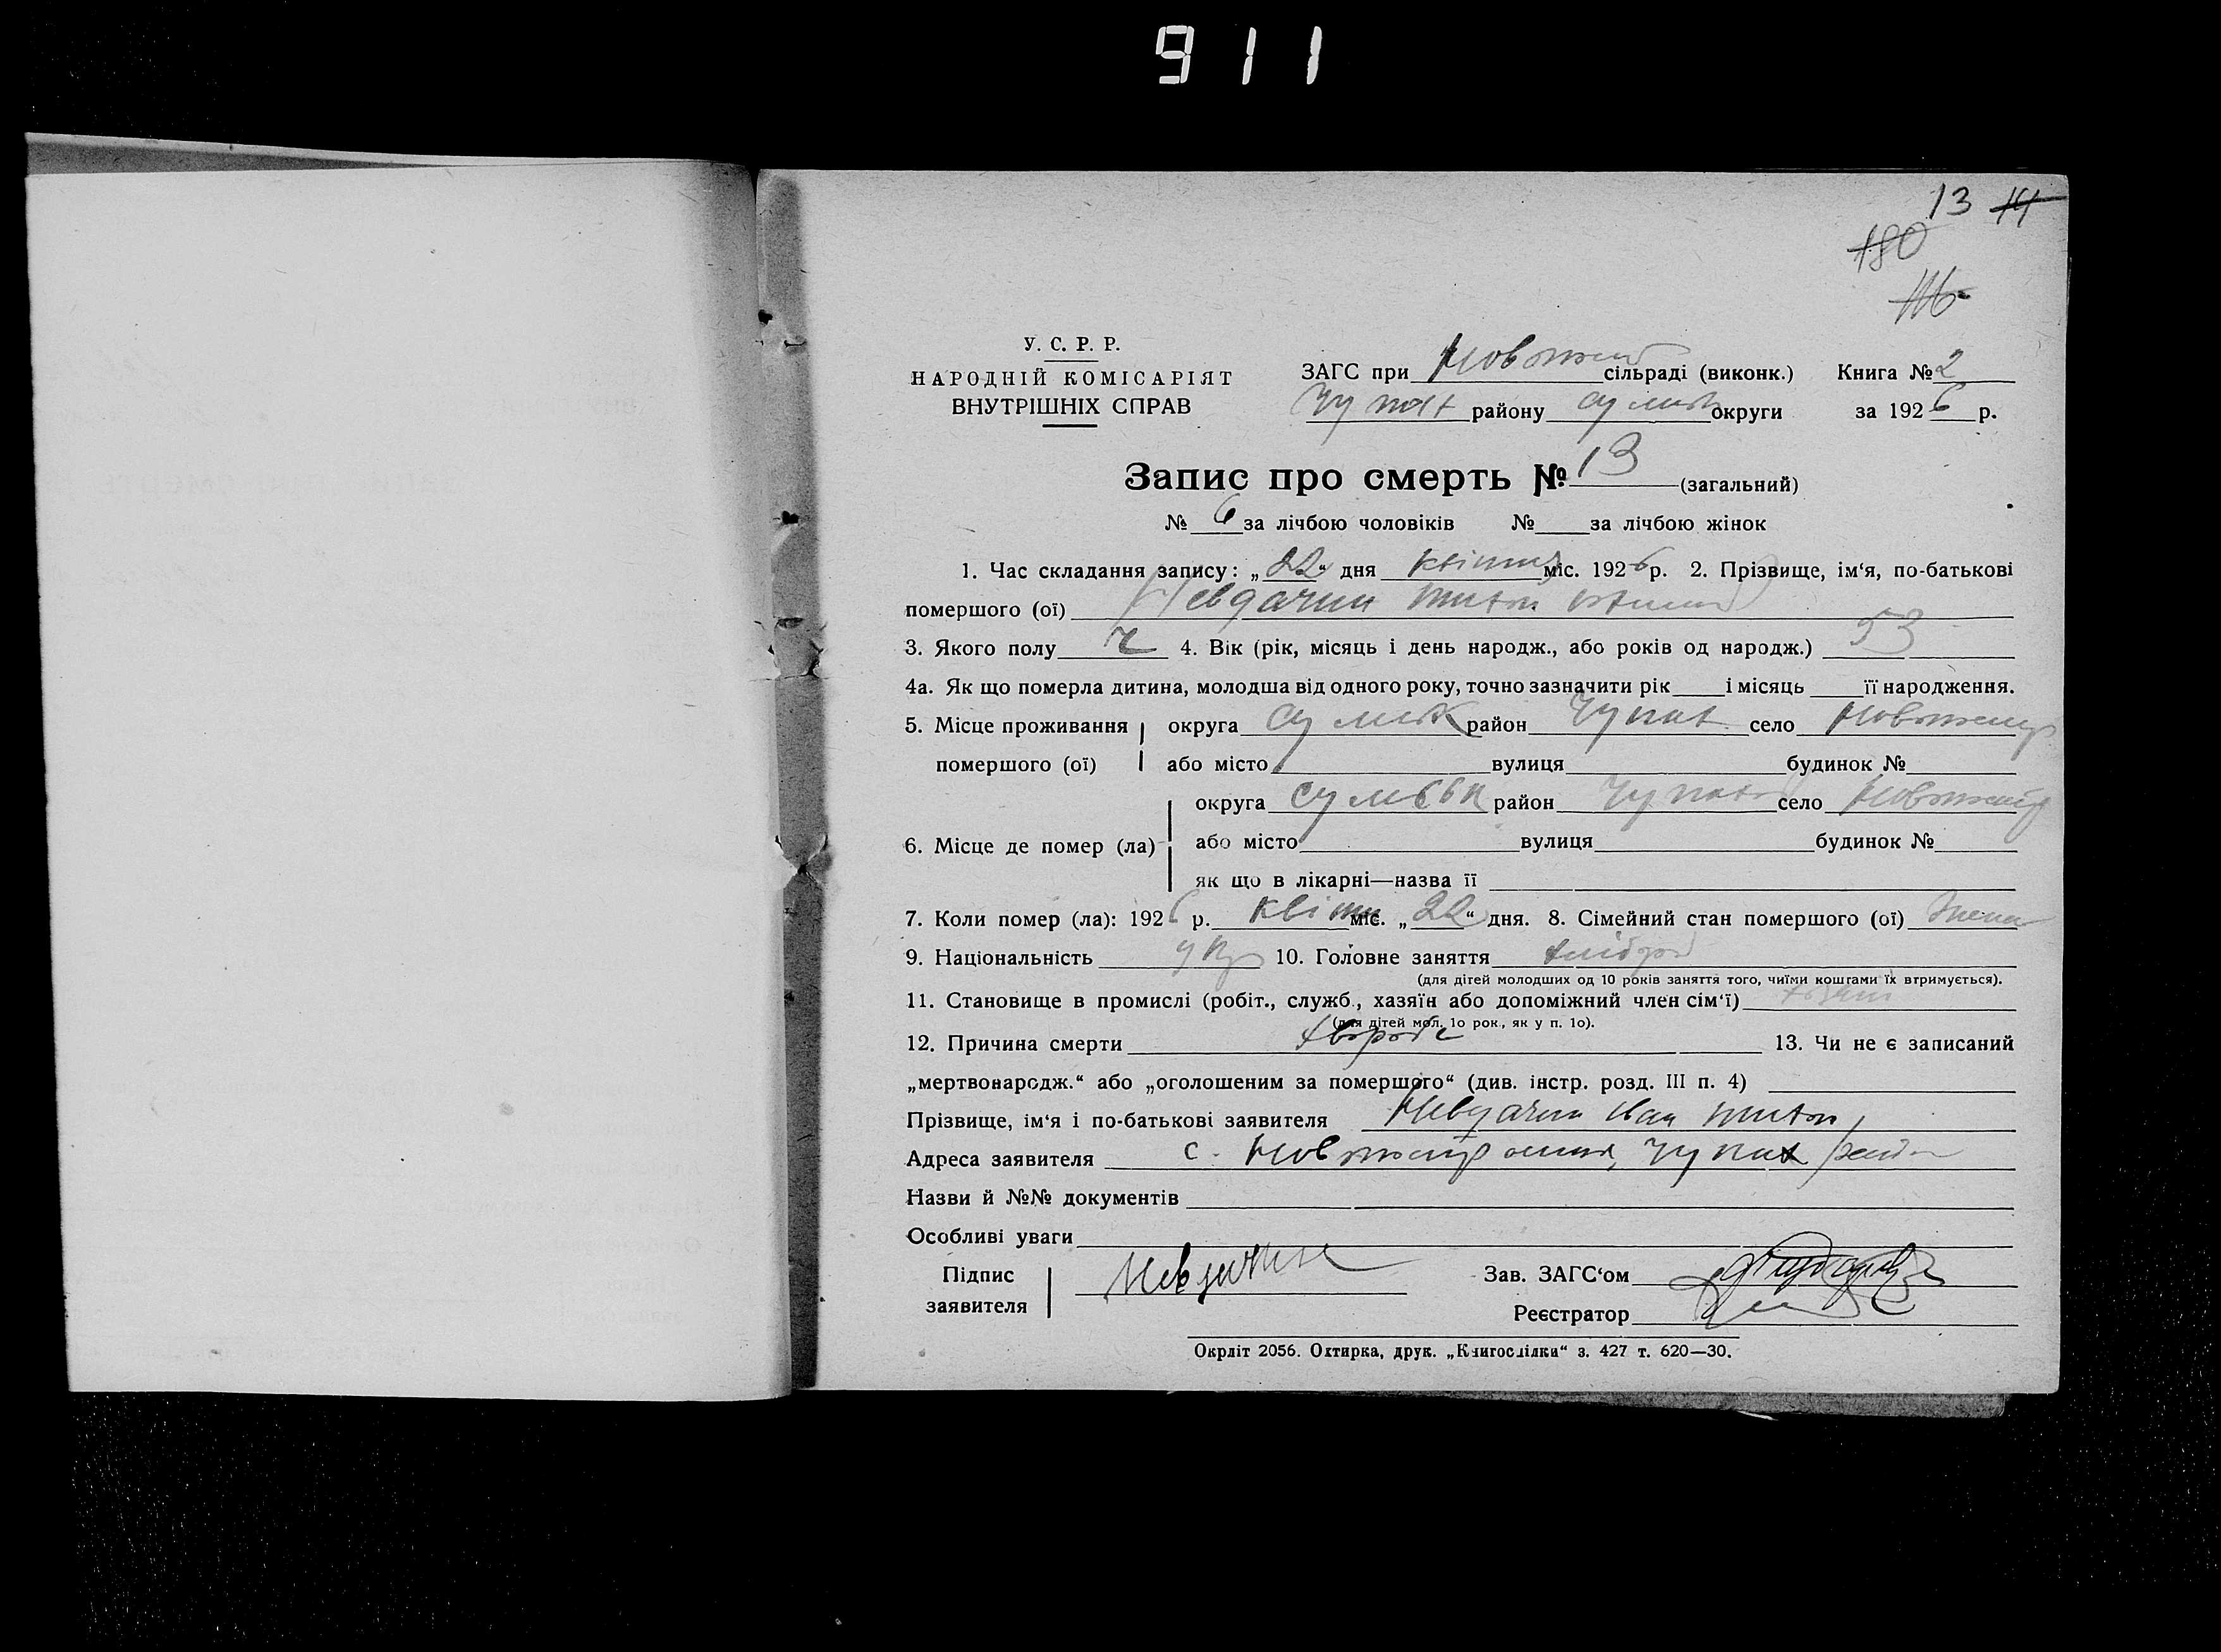 911
13 14
180
116
У. С. Р. Р.
НАРОДНІЙ КОМІСАРІЯТ
ВНУТРІШНІХ СПРАВ
ЗАГС при сільраді (виконк.) Книга № 2
Чупах району Сумськ округи за 1926 р.
Запис про смерть № 13 (загальний)
№ 6 за лічбою чоловіків № за лічбою жінок
1. Час складання запису: „22“ дня квітня міс. 1926 р. 2. Прізвище, ім‘я, по-батькові
помершого (ої) Невдачин Титон
3. Якого полу ч 4. Вік (рік, місяць і день народж., або років од народж.) 53
4а. Як що померла дитина, молодша від одного року, точно зазначити рік і місяць її народження.
5. Місце проживання округа Сумськ район Чупах село
помершого (ої) або місто вулиця будинок №
округа Сумськ район Чупах село
6. Місце де помер (ла) або місто вулиця будинок №
як що в лікарні—назва її
7. Коли помер (ла): 1926 р. квітн міс. „22“ дня. 8. Сімейний стан помершого (ої)
9. Національність укр 10. Головне заняття хлібороб
(для дітей молодших од 10 років заняття того, чиїми коштами їх втримується).
11. Становище в промислі (робіт., служб., хазяїн або допоміжний член сім‘ї) хазяїн
(для дітей мол. 10 рок., як у п. 10).
12. Причина смерти хвороба 13. Чи не є записаний
„мертвонародж.“ або „оголошеним за помершого“ (див. інстр. розд. III п. 4)
Прізвище, ім‘я і по-батькові заявителя Невдачин Иван Титон
Адреса заявителя с. Чупах район
Назви й №№ документів
Особливі уваги
Підпис
заявителя Невдачин
Зав. ЗАГС‘ом
Реєстратор
Окрліт 2056. Охтирка, друк. „Книгоспілки“ з. 427 т. 620—30.